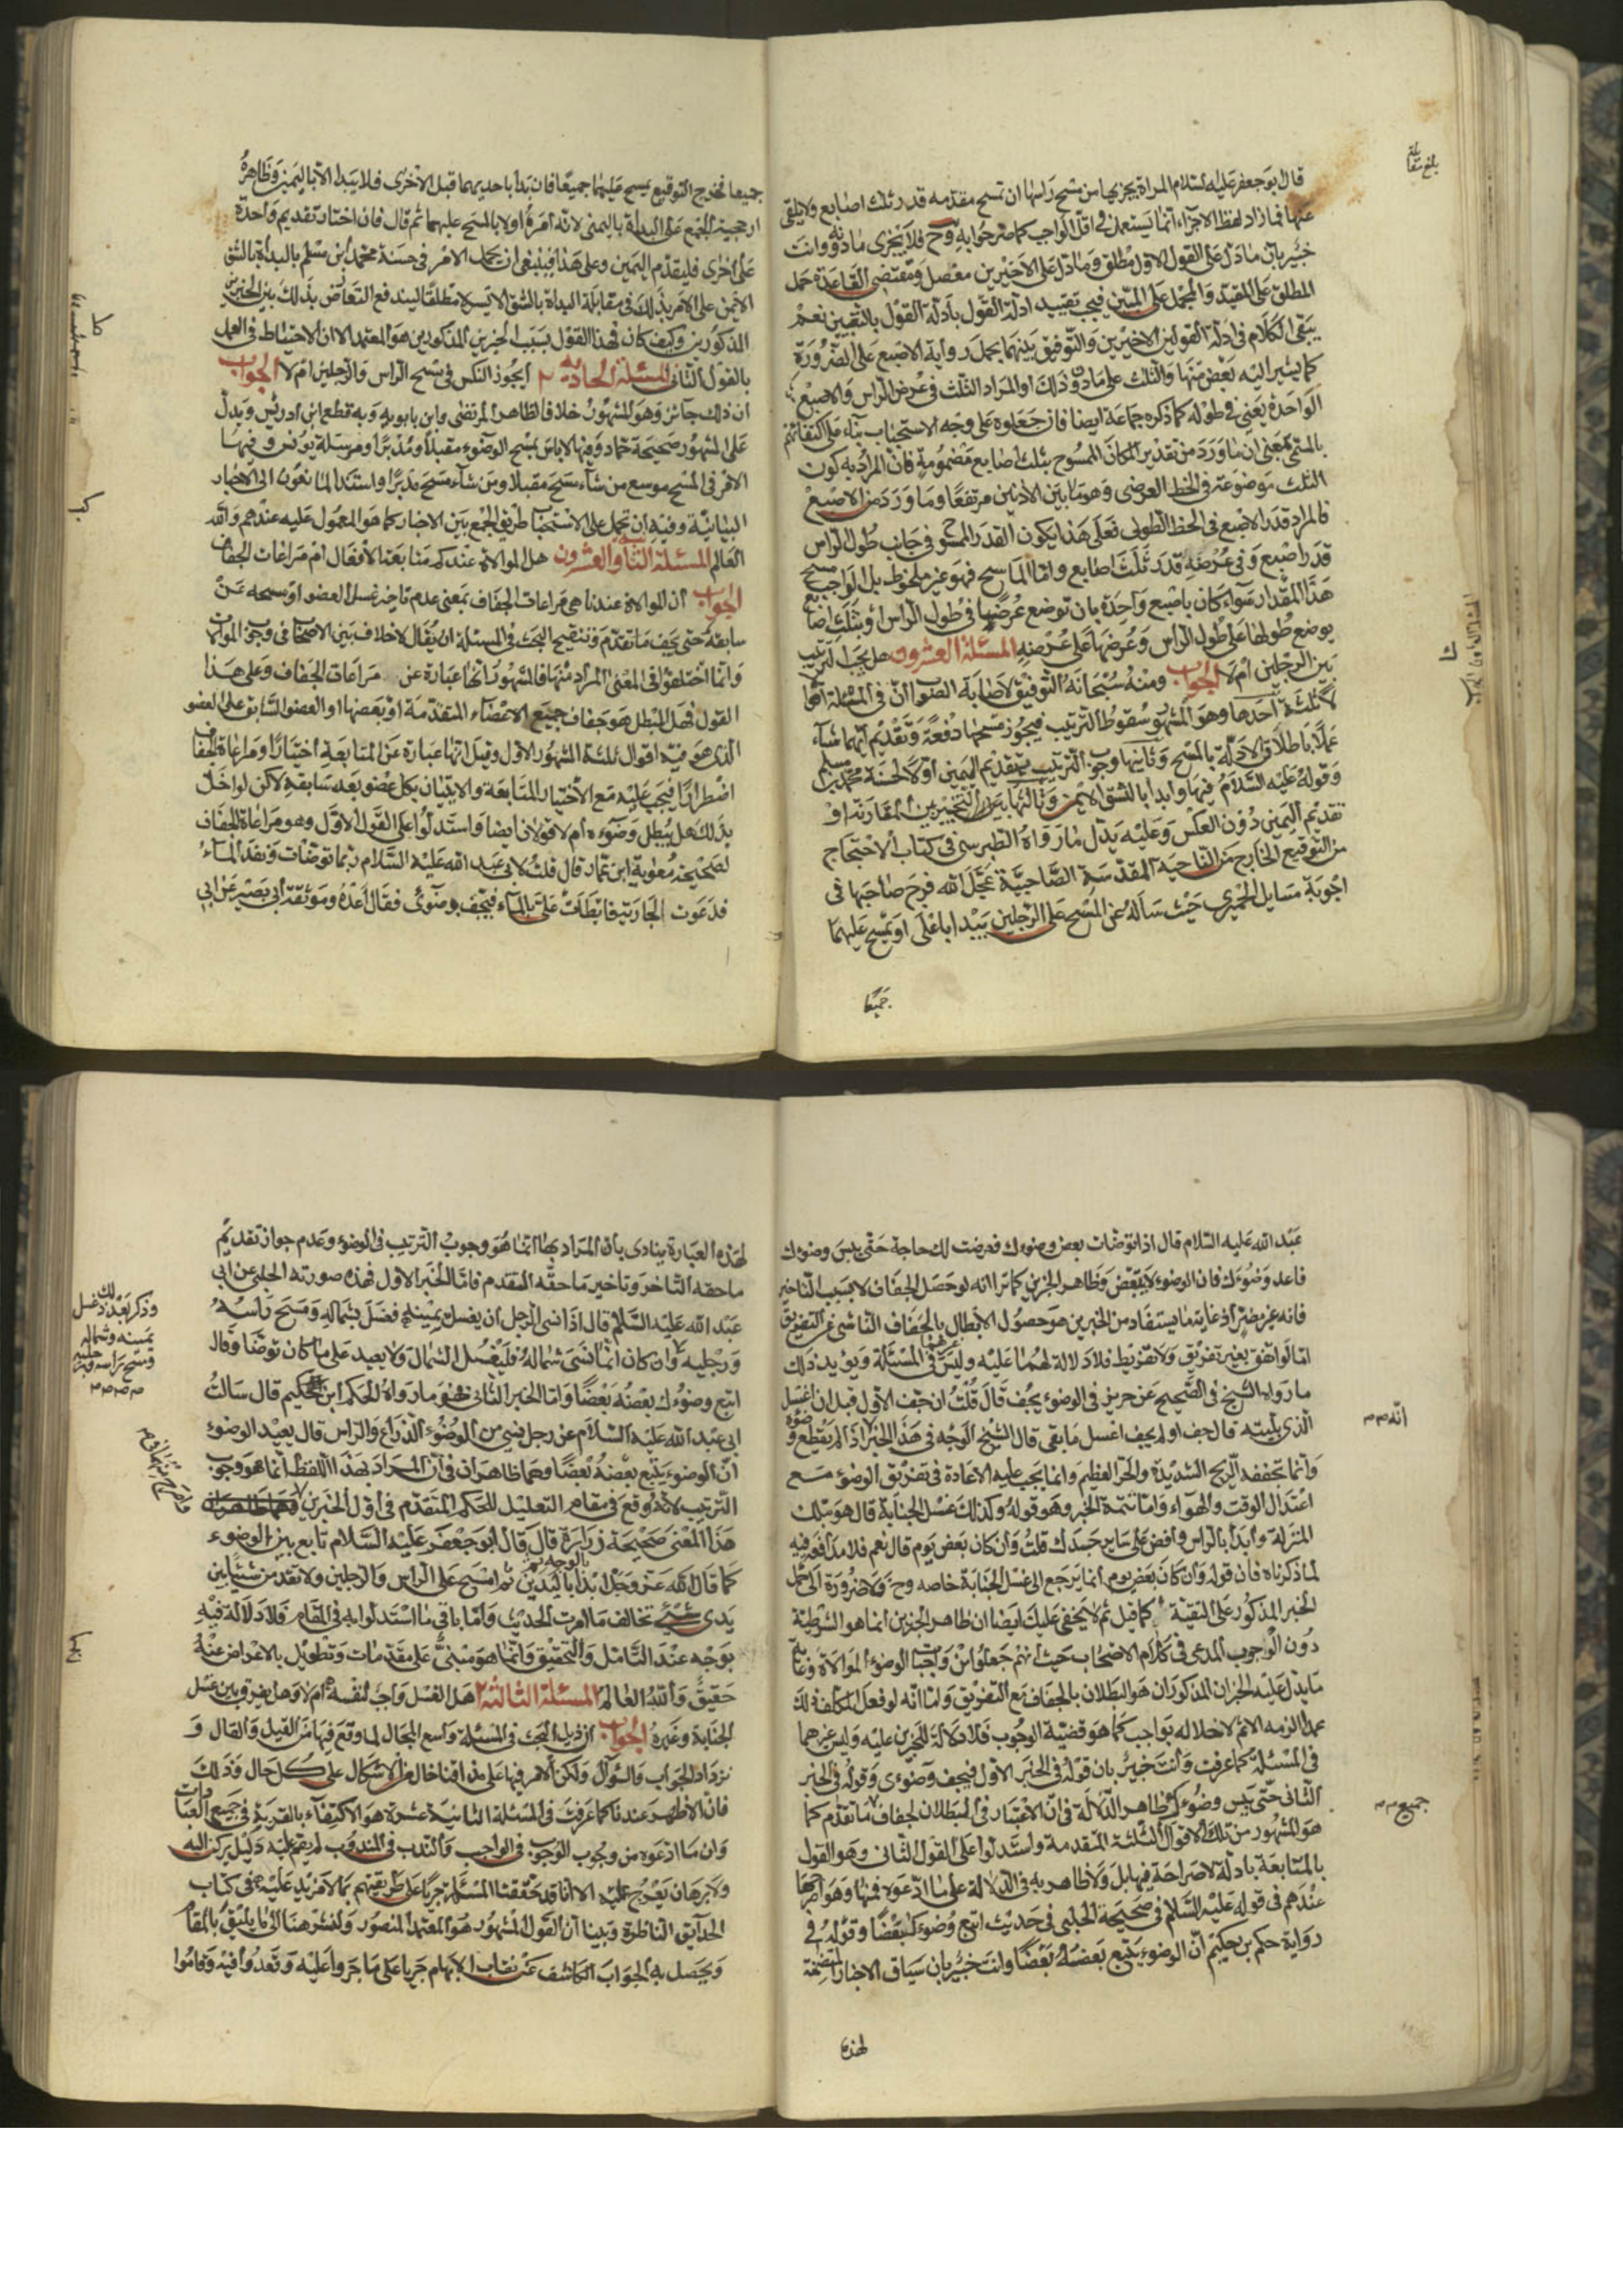 قال ابو جعفر عليه السلام المراة يجزيها من مسح راسها ان تمسح مقدمه قدر ثلث اصابع ولا يلقى
عنها خمارها ولفظ الاجزاء انما يستعمل في اقل الواجب كما صرحوا به وح فلا يجزى ما دونه وانت
خبير بان ما دل على القول الاول مطلق وما دل على الاخيرين مفصل ومقتضى القاعدة حمل
المطلق على المقيد والمجمل على المبين فيجب تقييد ادلة القول بادلة القول بالتقيين نعم
يبقى الكلام في ادلة القولين الاخيرين والتوفيق بينهما بحمل رواية الاصبع على الضرورة
كما يشير اليه بعض منها والثلث على ما دون ذلك او المراد الثلث في عرض الراس والاصبع
الواحدة يعني في طوله كما ذكره جماعة ايضا فان جعلوه على وجه الاستحباب بناء على اكتفائهم
بالمسمى بمعنى ان ما ورد من تقدير المكان الممسوح بثلث اصابع مضمومة فان المراد به كون
الثلث موضوعة في الخط العرضي وهو ما بين الاذنين مرتفعا وما ورد من الاصبع
فالمراد قدر الاصبع في الخط الطولى فعلى هذا يكون القدر الممسوح في جانب طول الراس
قدر اصبع وفي عرضه قدر ثلث اصابع واما الماسح فهو غير ملحوظ بل الواجب مسح
هذا المقدار سواء كان باصبع واحدة بان توضع عرضها في طول الراس او بثلث اصابع
يوضع طولها على طول الراس وعرضها على عرضه المسئلة العشرون هل يجب الترتيب
بين الرجلين ام لا الجواب ومنه سبحانه التوفيق لاصابة الصواب ان في المسئلة اقوالا
ثلثة احدها وهو المشهور سقوط الترتيب فيجوز مسحهما دفعة وتقديم ايهما شاء
عملا باطلاق الادلة بالمسح وثانيها وجوب الترتيب بتقديم اليمين اولا لحسنة محمد بن مسلم
وقوله عليه السلام فيها وابدا بالشق الايمن وثالثها يجوز التخيير بين المقارنة او
تقديم اليمين دون العكس وعليه يدل ما رواه الطبرسي في كتاب الاحتجاج
من التوقيع الخارج من الناحية المقدسة الصاحبية عجل الله فرج صاحبها في
اجوبة مسايل الحميري حيث سأله عن المسح على الرجلين يبدا باغلى او يمسح عليهما
جميعا
جميعا فخرج التوقيع يمسح عليهما جميعا فان بدأ باحديهما قبل الاخرى فلا يبدا الا باليمين وظاهره
ارجحية الجمع على البداة باليمنى لانه امره اولا بالمسح عليهما ثم قال فان اختار تقديم واحدة
على اخرى فليقدم اليمين وعلى هذا فينبغى ان يحمل الامر في حسنة محمد بن مسلم بالبداة بالشق
الايمن على الامر بذلك في مقابلة البداة بالشق الايسر لا مطلقا ليندفع التعارض بذلك بين الخبرين
المذكورين وكيف كان فهذا القول بسبب الخبرين المذكورين هو المعتمد الا ان الاحتياط في العمل
بالقول الثاني المسئلة الحادية ٢ ايجوز النكس في مسح الراس والرجلين ام لا الجواب
ان ذلك جائز وهو المشهور خلافا لظاهر المرتضى وابن بابويه وبه قطع ابن ادريس ويدل
على المشهور صحيحة حماد وفيها لا باس بمسح الوضوء مقبلا ومدبرا ومرسلة يونس وفيها
الامر في المسح موسع من شاء مسح مقبلا ومن شاء مسح مدبرا واستند المانعون الى الاخبار
البيانية وفيه ان تحمل على الاستحباب طريق الجمع بين الاخبار كما هو المعمول عليه عندهم والله
العالم المسئلة الثانية والعشرون هل الموالاة عندكم متابعة الافعال ام مراعات الجفاف
الجواب ان الموالاة عندنا هي مراعات الجفاف بمعنى عدم تاخير غسل العضو او مسحه عن
سابقه حتى يجف ما تقدم وتنقيح البحث في المسئلة ان يقال لا خلاف بين الاصحاب في وجوب الموالات
وانما اختلفوا في المعنى المراد منها فالمشهور انها عبارة عن مراعات الجفاف وعلى هذا
القول فهل المبطل هو جفاف جميع الاعضاء المتقدمة او بعضها او العضو السابق على العضو
الذي هو فيه اقوال ثلثة المشهور الاول وقيل انها عبارة عن المتابعة اختيارا ومراعاة الجفاف
اضطرارا فيجب عليه مع الاختيار المتابعة والاتيان بكل عضو بعد سابقه لاكن لو اخل
بذلك هل يبطل وضوءه ام لا قولان ايضا واستدلوا على القول الاول وهو مراعاة الجفاف
لصحيحة معوية ابن عمار قال قلت لابي عبد الله عليه السلام ربما توضات ونفد الماء
فدعوت الجارية فابطات علي بالماء فيجف وضوئى فقال اعد وموثقة ابي بصير عن ابي
عبد الله عليه السلام قال اذا توضات بعض وضوءك فعرضت لك حاجة حتى يبس وضوءك
فاعد وضوءك فان الوضوء لا يتبعض وظاهر الخبرين كما ترا انه لو حصل الجفاف لا بسبب التاخير
فانه غير مضر اذ غاية ما يستفاد من الخبرين هو حصول الابطال بالجفاف الناشي عن التفريق
اما لو اتفق بغير تفريق ولا تفريط فلا دلالة لهما عليه وليس غيرهما في المسئلة ويؤيد ذلك
ما رواه الشيخ في الصحيح عن حريز في الوضوء يجف قال قلت ان جف الاول قبل ان اغسل
الذي يليه قال جف او لم يجف اغسل ما بقى قال الشيخ الوجه في هذا الخبر اذا لم يقطع وضوءه
وانما تجففه الريح الشديدة والحر العظيم وانما يجب عليه الاعادة في تفريق الوضوء مع
اعتدال الوقت والهواء واما تتمة الخبر وهو قوله وكذلك غسل الجنابة قال هو بتلك
المنزلة وابدأ بالراس وافض على ساير جسدك قلت وان كان بعض يوم قال نعم فلا مدافعة فيه
لما ذكرناه فان قوله وان كان بعض يوم انما يرجع الى غسل الجنابة خاصه وح فلا ضرورة الى حمل
الخبر المذكور على التقية كما قيل ثم لا يخفى عليك ايضا ان ظاهر الخبرين انما هو الشرطية
دون الوجوب المدعى في كلام الاصحاب حيث انهم جعلوا من واجبات الوضوء الموالاة وغاية
ما يدل عليه الخبران المذكوران هو البطلان بالجفاف مع التفريق واما انه لو فعل المكلف ذلك
عمدا لزمه الاثم لاخلاله بواجب كما هو قضية الوجوب فلا دلالة للخبرين عليه وليس غيرهما
في المسئلة كما عرفت وانت خبير بان قوله في الخبر الاول فيجف وضوءى وقوله في الخبر
الثاني حتى يبس وضوءك ظاهر الدلالة في ان الاعتبار في البطلان لجفاف ما تقدم كما
هو المشهور من تلك الاقوال الثلثة المتقدمة واستدلوا على القول الثاني وهو القول
بالمتابعة بادلة لا صراحة فيها بل ولا ظاهريه في الدلالة على ما ادعوه فمنها وهو اصرحها
عندهم في قوله عليه السلام في صحيحة الحلبي في حديث اتبع وضوءك بعضا وقوله في
رواية حكم بن حكيم ان الوضوء يتبع بعضه بعضا وانت خبير بان سياق الاخبار المتضمنة
لهذه
لهذه العبارة ينادي بان المراد بها انما هو وجوب الترتيب في الوضوء وعدم جواز تقديم
ما حقه التاخر وتاخير ما حقه المقدم فاما الخبر الاول فهذه صورته الحلبي عن ابي
عبد الله عليه السلام قال اذا نسى الرجل ان يغسل يمينه فغسل شماله ومسح راسه
ورجليه وان كان انما نسى شماله فليغسل الشمال ولا يعيد على ما كان توضا وقال
اتبع وضوءك بعضه بعضا واما الخبر الثاني فهو ما رواه الحكم ابن حكيم قال سالت
ابي عبد الله عليه السلام عن رجل نسى من الوضوء الذراع والراس قال يعيد الوضوء
ان الوضوء يتبع بعضه بعضا وهما ظاهران في ان المراد بهذا اللفظ انما هو وجوب
الترتيب لانه وقع في مقام التعليل للحكم المتقدم في اول الخبرين
هذا المعنى صحيحة زرارة قال قال ابو جعفر عليه السلام تابع بين الوضوء
كما قال الله عز وجل ابدا بالوجه ثم باليدين ثم امسح على الراس والرجلين ولا تقدمن شيئا بين
يدى شيء تخالف ما امرت الحديث واما باقي ما استدلوا به في المقام فلا دلالة فيه
بوجه عند التامل والتحقيق وانما هو مبني على مقدمات وتطويل بالاعراض عنه
حقيق والله العالم المسئلة الثالثة ٢ هل الغسل واجب لنفسه ام لا وهل يفرق بين غسل
الجنابة وغيره الجواب ان ذيل البحث في المسئلة واسع المجال لما وقع فيها من القيل والقال و
تزداد الجواب والسؤال ولكن الامر فيها على مذاقنا خال من الاشكال على كل حال وذلك
فان الاظهر عندنا كما عرفت في المسئلة الثانية عشرة هو الاكتفاء بالقربة في جميع العبادات
وان ما ادعوه من وجوب الوجوب في الواجب والندب في المندوب لم يقم عليه دليل يركن اليه
ولا برهان يعرج عليه الا انا قد حققنا المسئلة جريا على طريقتهم بما لا مزيد عليه في كتاب
الحدايق الناظرة وبينا ان القول المشهور هو المعتمد المنصور ولنشر هنا الى ما يليق بالمقام
ويحصل به الجواب الكاشف عن نقاب الابهام جريا على ما جروا عليه وقعدوا فيه وقاموا
بلغ مقابلة
انه
جميع
وذكر بعد ذلك غسل
يمينه وشماله
ومسح براسه ورجليه